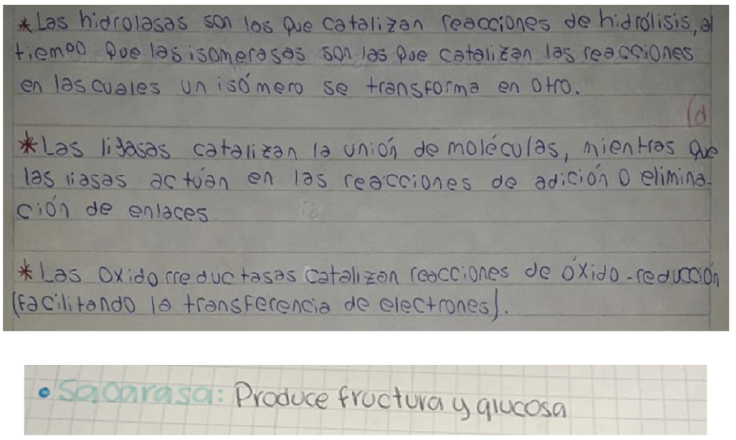 *Las hidrolasas son las que catalizan reacciones de hidrólisis, al
tiempo que las isomerasas son las que catalizan las reacciones
en las cuales un isómero se transforma en otro.
*Las ligasas catalizan la unión de moléculas, mientras que
las liasas actúan en las reacciones de adición o elimina-
ción de enlaces.
*Las oxidorreductasas catalizan reacciones de óxido-reducción
(facilitando la transferencia de electrones).
• Sacarasa: Produce fructura y glucosa